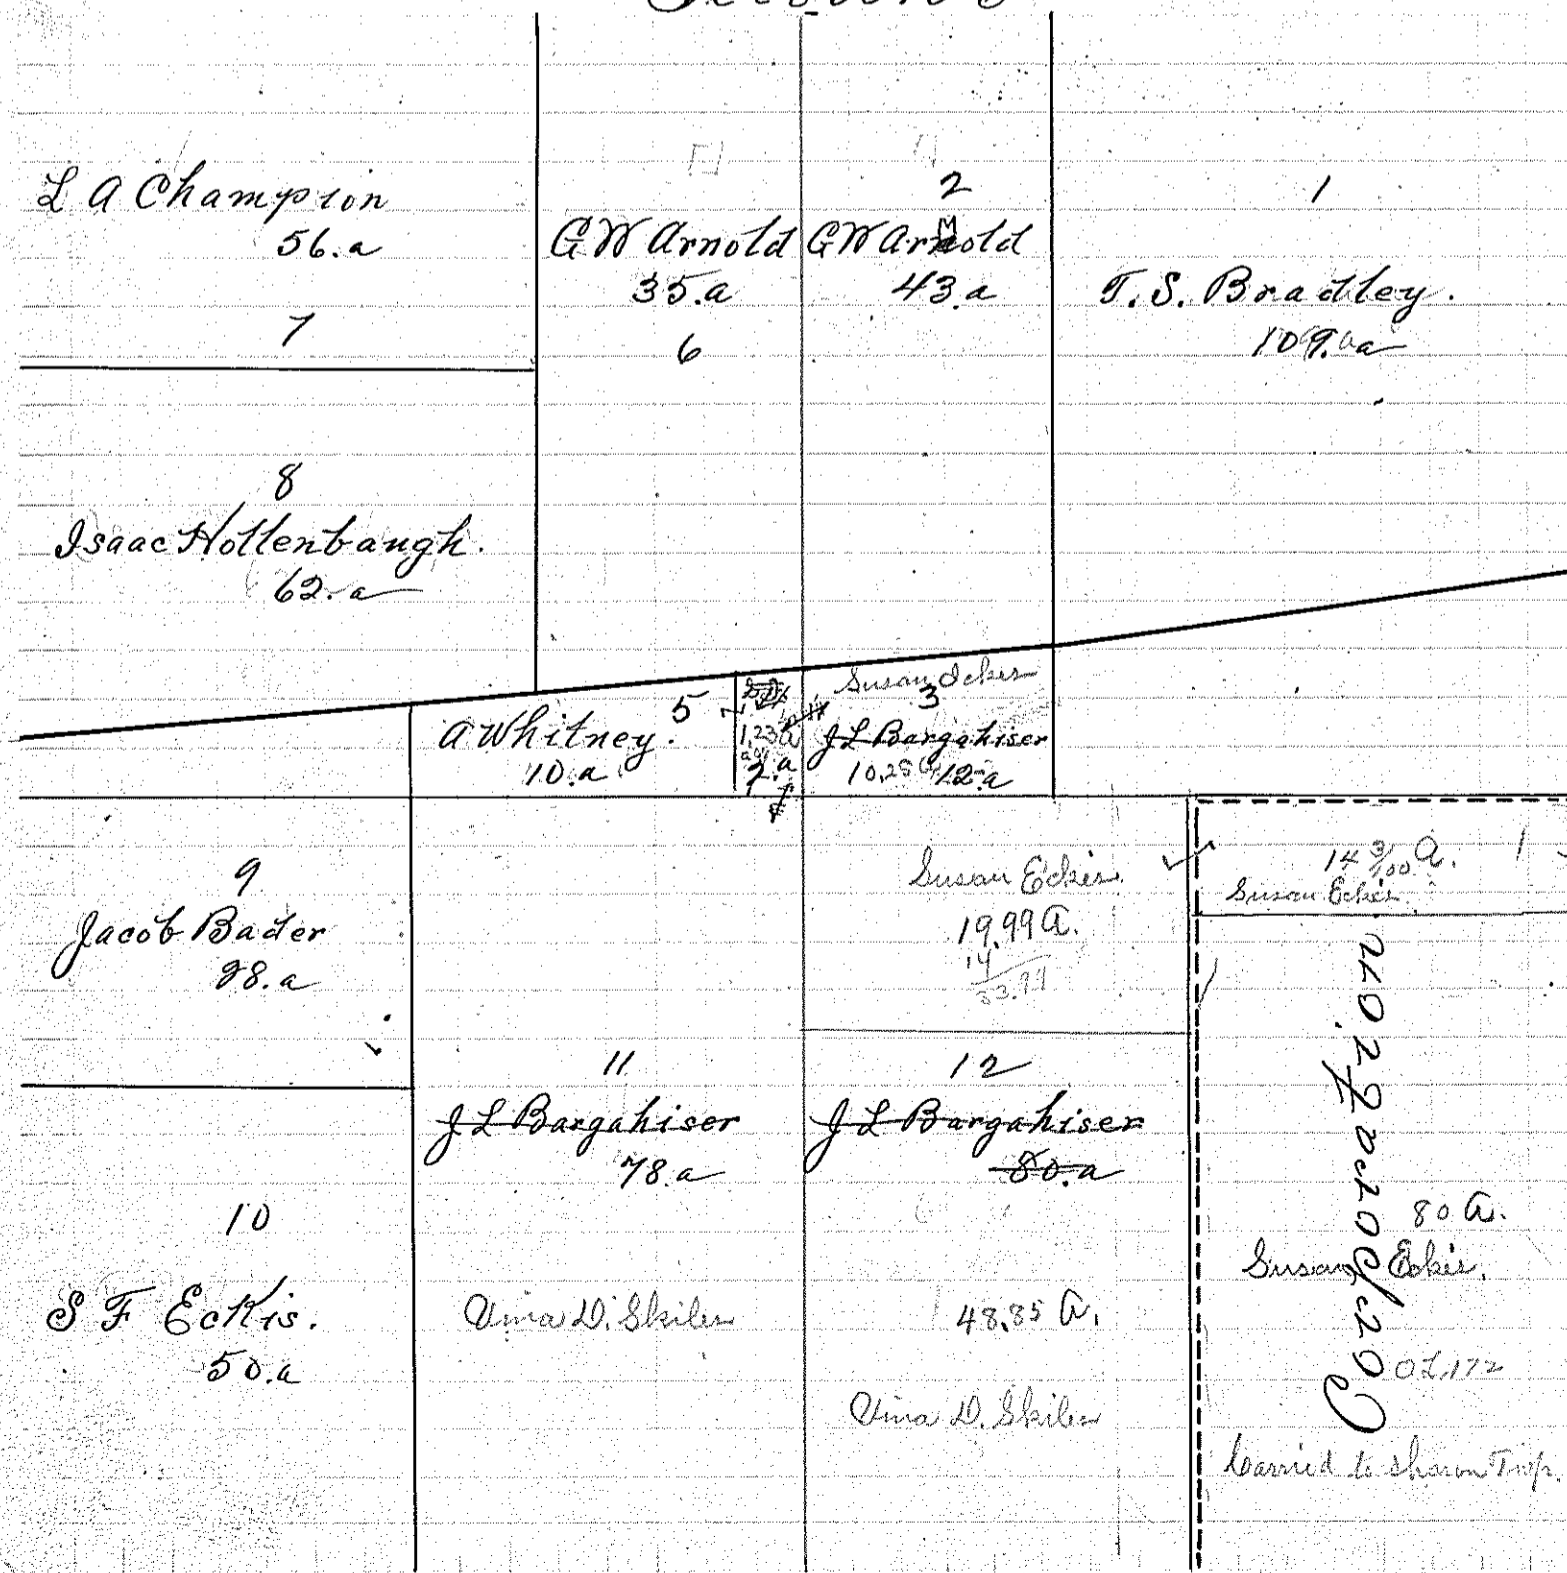 L A Champion
56.a
7
G W Arnold
35.a
6
2
G W Arnold
43.a
1
T. S. Bradley.
109.a
8
Isaac Hollenbaugh.
62.a
5
A Whitney.
10.a
1.23 a
2.a
Susan Eckis
3
J L Bargahiser
10.25 a 12.a
9
Jacob Bader
98.a
Susan Eckis
19.99 A.
14
33.99
14 3/100 A. 1
Susan Eckis
11
J L Bargahiser
78.a
12
J L Bargahiser
80.a
10
S F Eckis.
50.a
Vina D. Skiles
48.85 A.
Vina D. Skiles
80 A.
Susan Eckis.
OL 172
Carried to Sharon Twp.